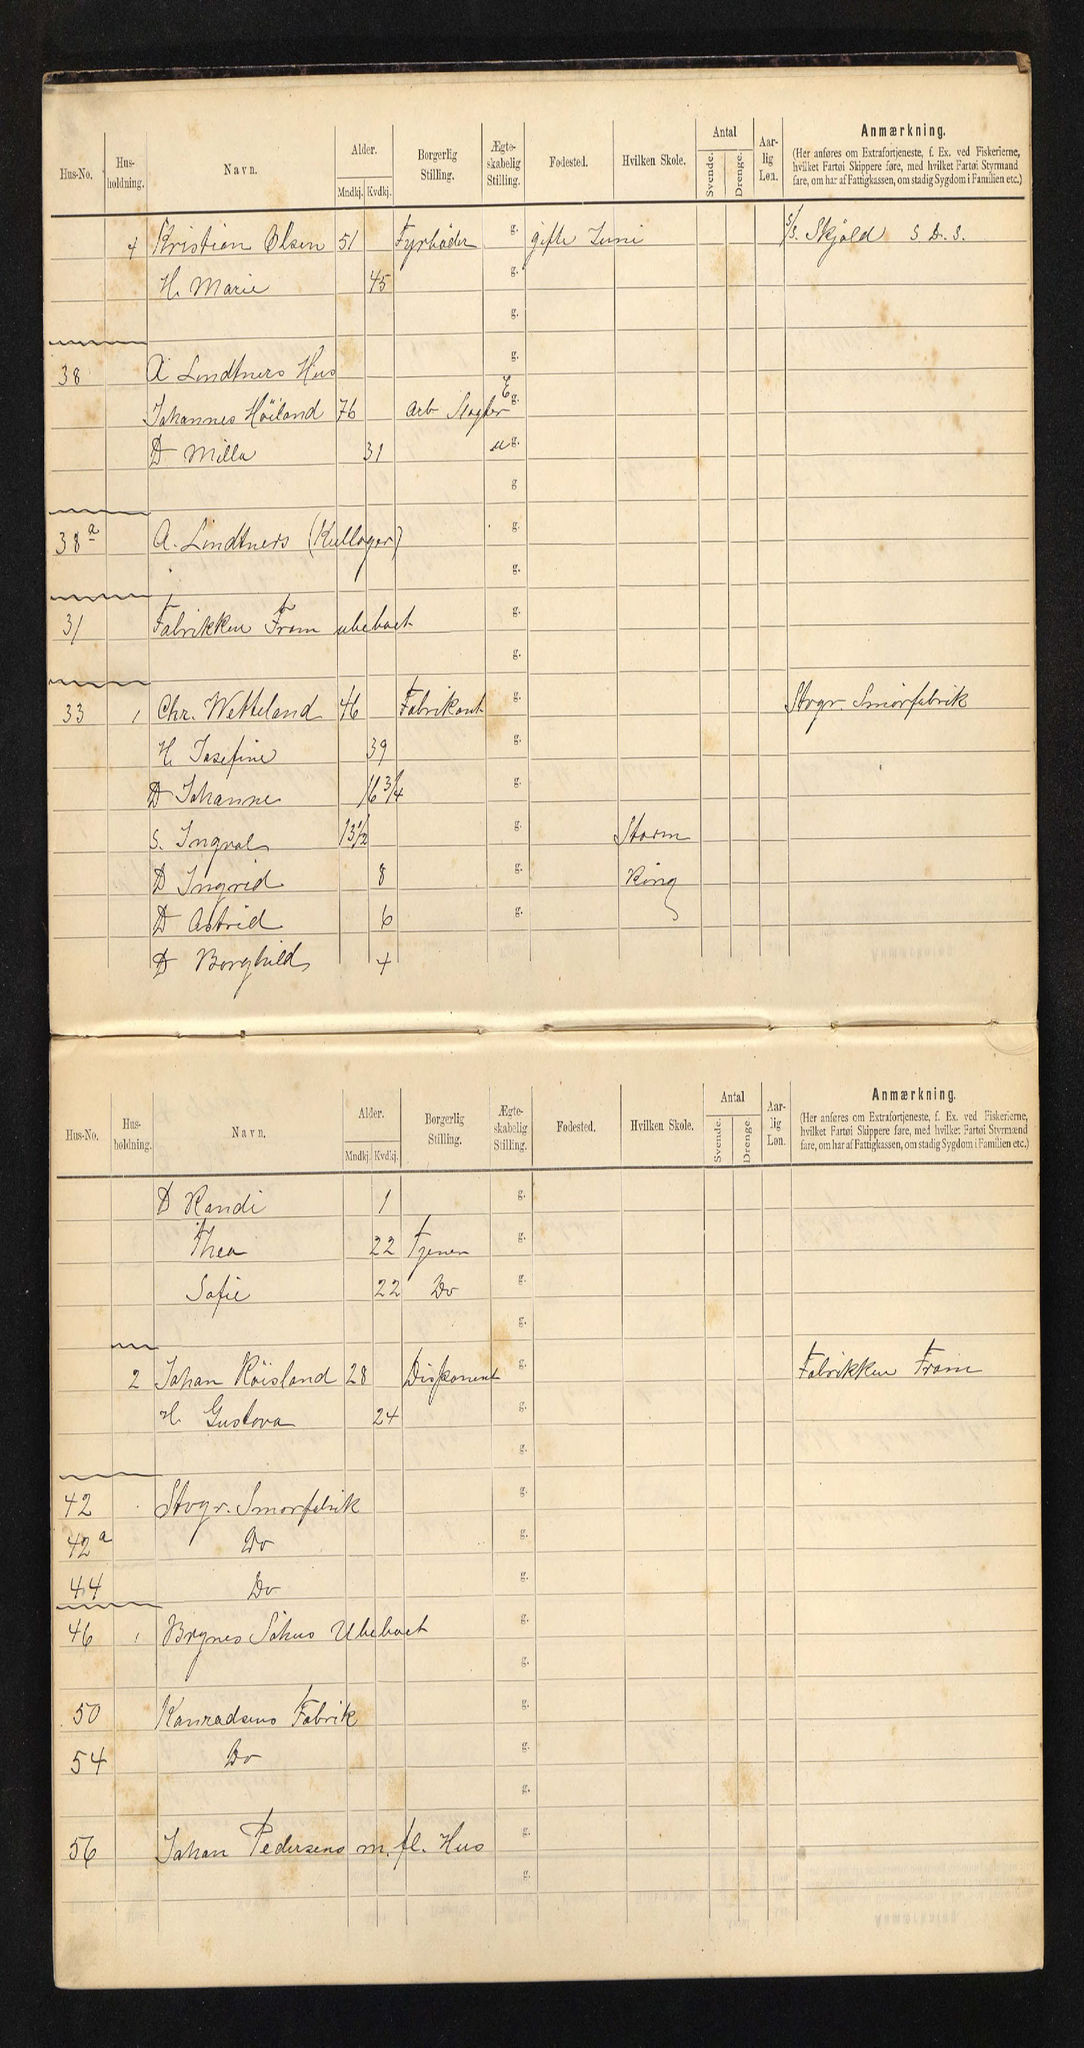 Hus-No. Hus-holdning. Navn. Alder. Mndkj. Kvdkj. Borgerlig Stilling. Ægte-skabelig Stilling. Fødested. Hvilken Skole. Antal Svende. Drenge. Aar-lig Løn. Anmærkning.
(Her anføres om Extrafortjeneste, f. Ex. ved Fiskerierne,
hvilket Fartøi Skippere føre, med hvilket Fartøi Styrmænd
fare, om har af Fattigkassen, om stadig Sygdom i Familien etc.)
4 Kristian Olsen 51 Fyrbøder g. gifte Juni S/S. Skjold S. D. S.
H. Marie 45 g.
g.
38 A Lindtners Hus g.
Johannes Höiland 76 Arb Slagter E g.
D Milla 31 u g.
g
38 a A. Lindtners (Kullager) g.
g.
31 Fabrikken Fram ubeboet g.
g.
33 1 Chr. Wetteland 46 Fabrikant g. Stvgr. Smörfabrik
H. Josefine 39 g.
D Johanne 16 3/4 g.
S. Ingval 13 1/2 g. Storm
D Ingrid 8 g. Kong
D Astrid 6 g.
D Borghild 4
Hus-No. Hus-holdning. Navn. Alder. Mndkj. Kvdkj. Borgerlig Stilling. Ægte-skabelig Stilling. Fødested. Hvilken Skole. Antal Svende. Drenge. Aar-lig Løn. Anmærkning.
(Her anføres om Extrafortjeneste, f. Ex. ved Fiskerierne,
hvilket Fartøi Skippere føre, med hvilket Fartøi Styrmænd
fare, om har af Fattigkassen, om stadig Sygdom i Familien etc.)
D Randi 1 g.
Thea 22 Tjener g.
Sofie 22 Do g.
g.
2 Johan Röisland 28 Disponent g. Fabrikken Fram
H. Gustava 24 g.
g.
42 Stvgr. Smorfabrik g.
42 a Do g.
44 Do g.
46 1 Brynes Söhus Ubeboet g.
g.
50 Konradsens Fabrik g.
54 Do g.
g.
56 Johan Pedersens m. fl. Hus g.
g.